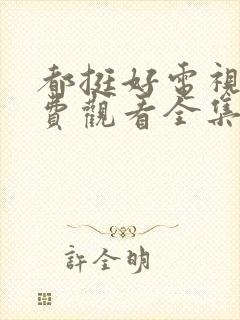 都挺好電視
費觀看全集
許全明